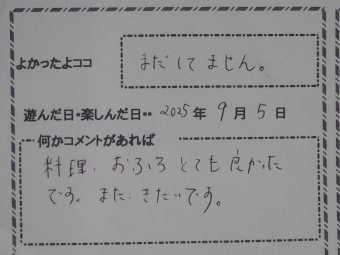 よかったよココ
まだしてません。
遊んだ日・楽しんだ日・・ 2025年 9月 5日
何かコメントがあれば
料理、おふろ とても良かった
です。また、きたいです。